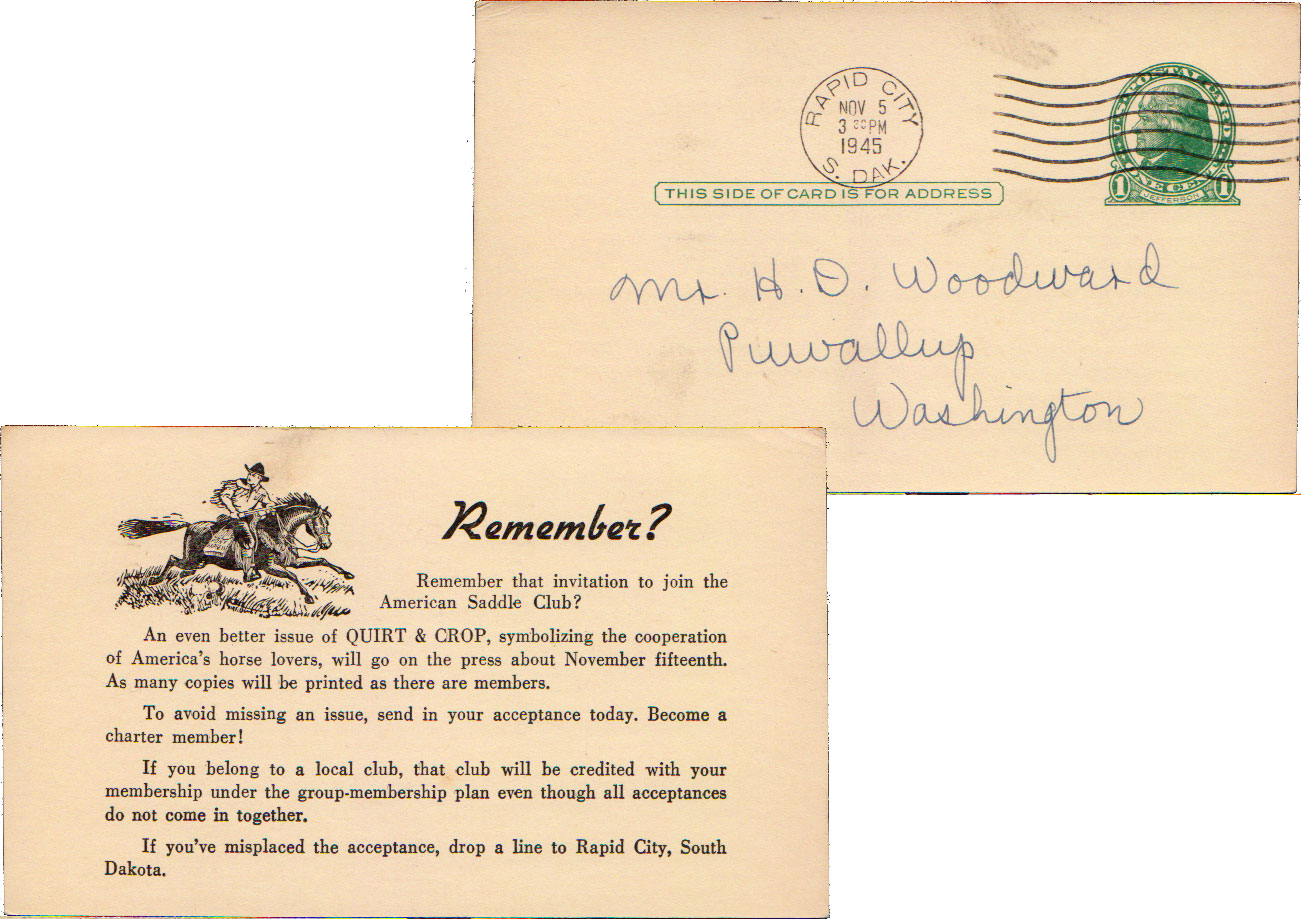 RAPID CITY
NOV 5
3 30 PM
1945
S. DAK.
U.S. POSTAL CARD
ONE CENT
1 1
JEFFERSON
THIS SIDE OF CARD IS FOR ADDRESS
Mr. H. D. Woodward
Puwallup
Washington
Remember?
Remember that invitation to join the
American Saddle Club?
An even better issue of QUIRT & CROP, symbolizing the cooperation
of America's horse lovers, will go on the press about November fifteenth.
As many copies will be printed as there are members.
To avoid missing an issue, send in your acceptance today. Become a
charter member!
If you belong to a local club, that club will be credited with your
membership under the group-membership plan even though all acceptances
do not come in together.
If you've misplaced the acceptance, drop a line to Rapid City, South
Dakota.